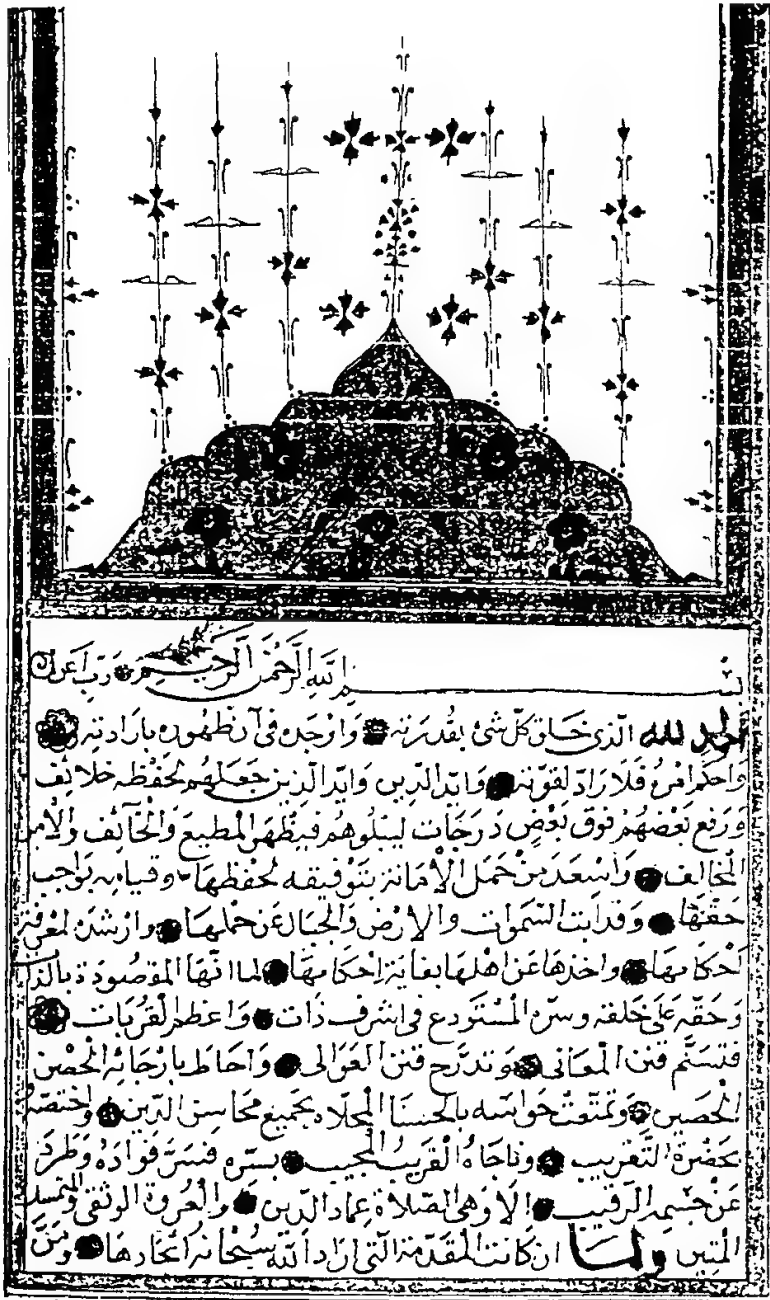 بسم الله الرحمن الرحيم رب أعن
الحمد لله الذي خلق كل شئ بقدرته وأوجده في آن ظهوره بارادته
وأحكم أمره فلا راد لقوته وأيد الدين وأيد الذين جعلهم لحفظه خلائف
ورفع بعضهم فوق بعض درجات ليبلوهم فيظهر المطيع والخائف والآمن
المخالف وأسعد من حمل الأمانة بتوفيقه لحفظها وقيامه بواجب
حقها وقد أبت السموات والأرض والجبال عن حملها وأرشده لمعرفة
أحكامها وأخذها عن أهلها بغاية إحكامها لما انها المقصودة بالذات
وحقه على خلقه وسره المستودع في أشرف ذات وأعظم القربات
فتسنم قنن المعاني وتدرج قنن العوالي وأحاط بأرجائه الحصن
الحصين وتمتعت حواسه بالحسنا المجلاه بجميع محاسن الدين واختصه
بحضرة التقريب وناجاه القريب المجيب بسره فسر فؤاده وطرد
عن جسمه الرقيب ألا وهي الصلاة عماد الدين والعروة الوثقى
المتين ولما ان كانت المقدمة التي أراد الله سبحانه اتحادها ومن